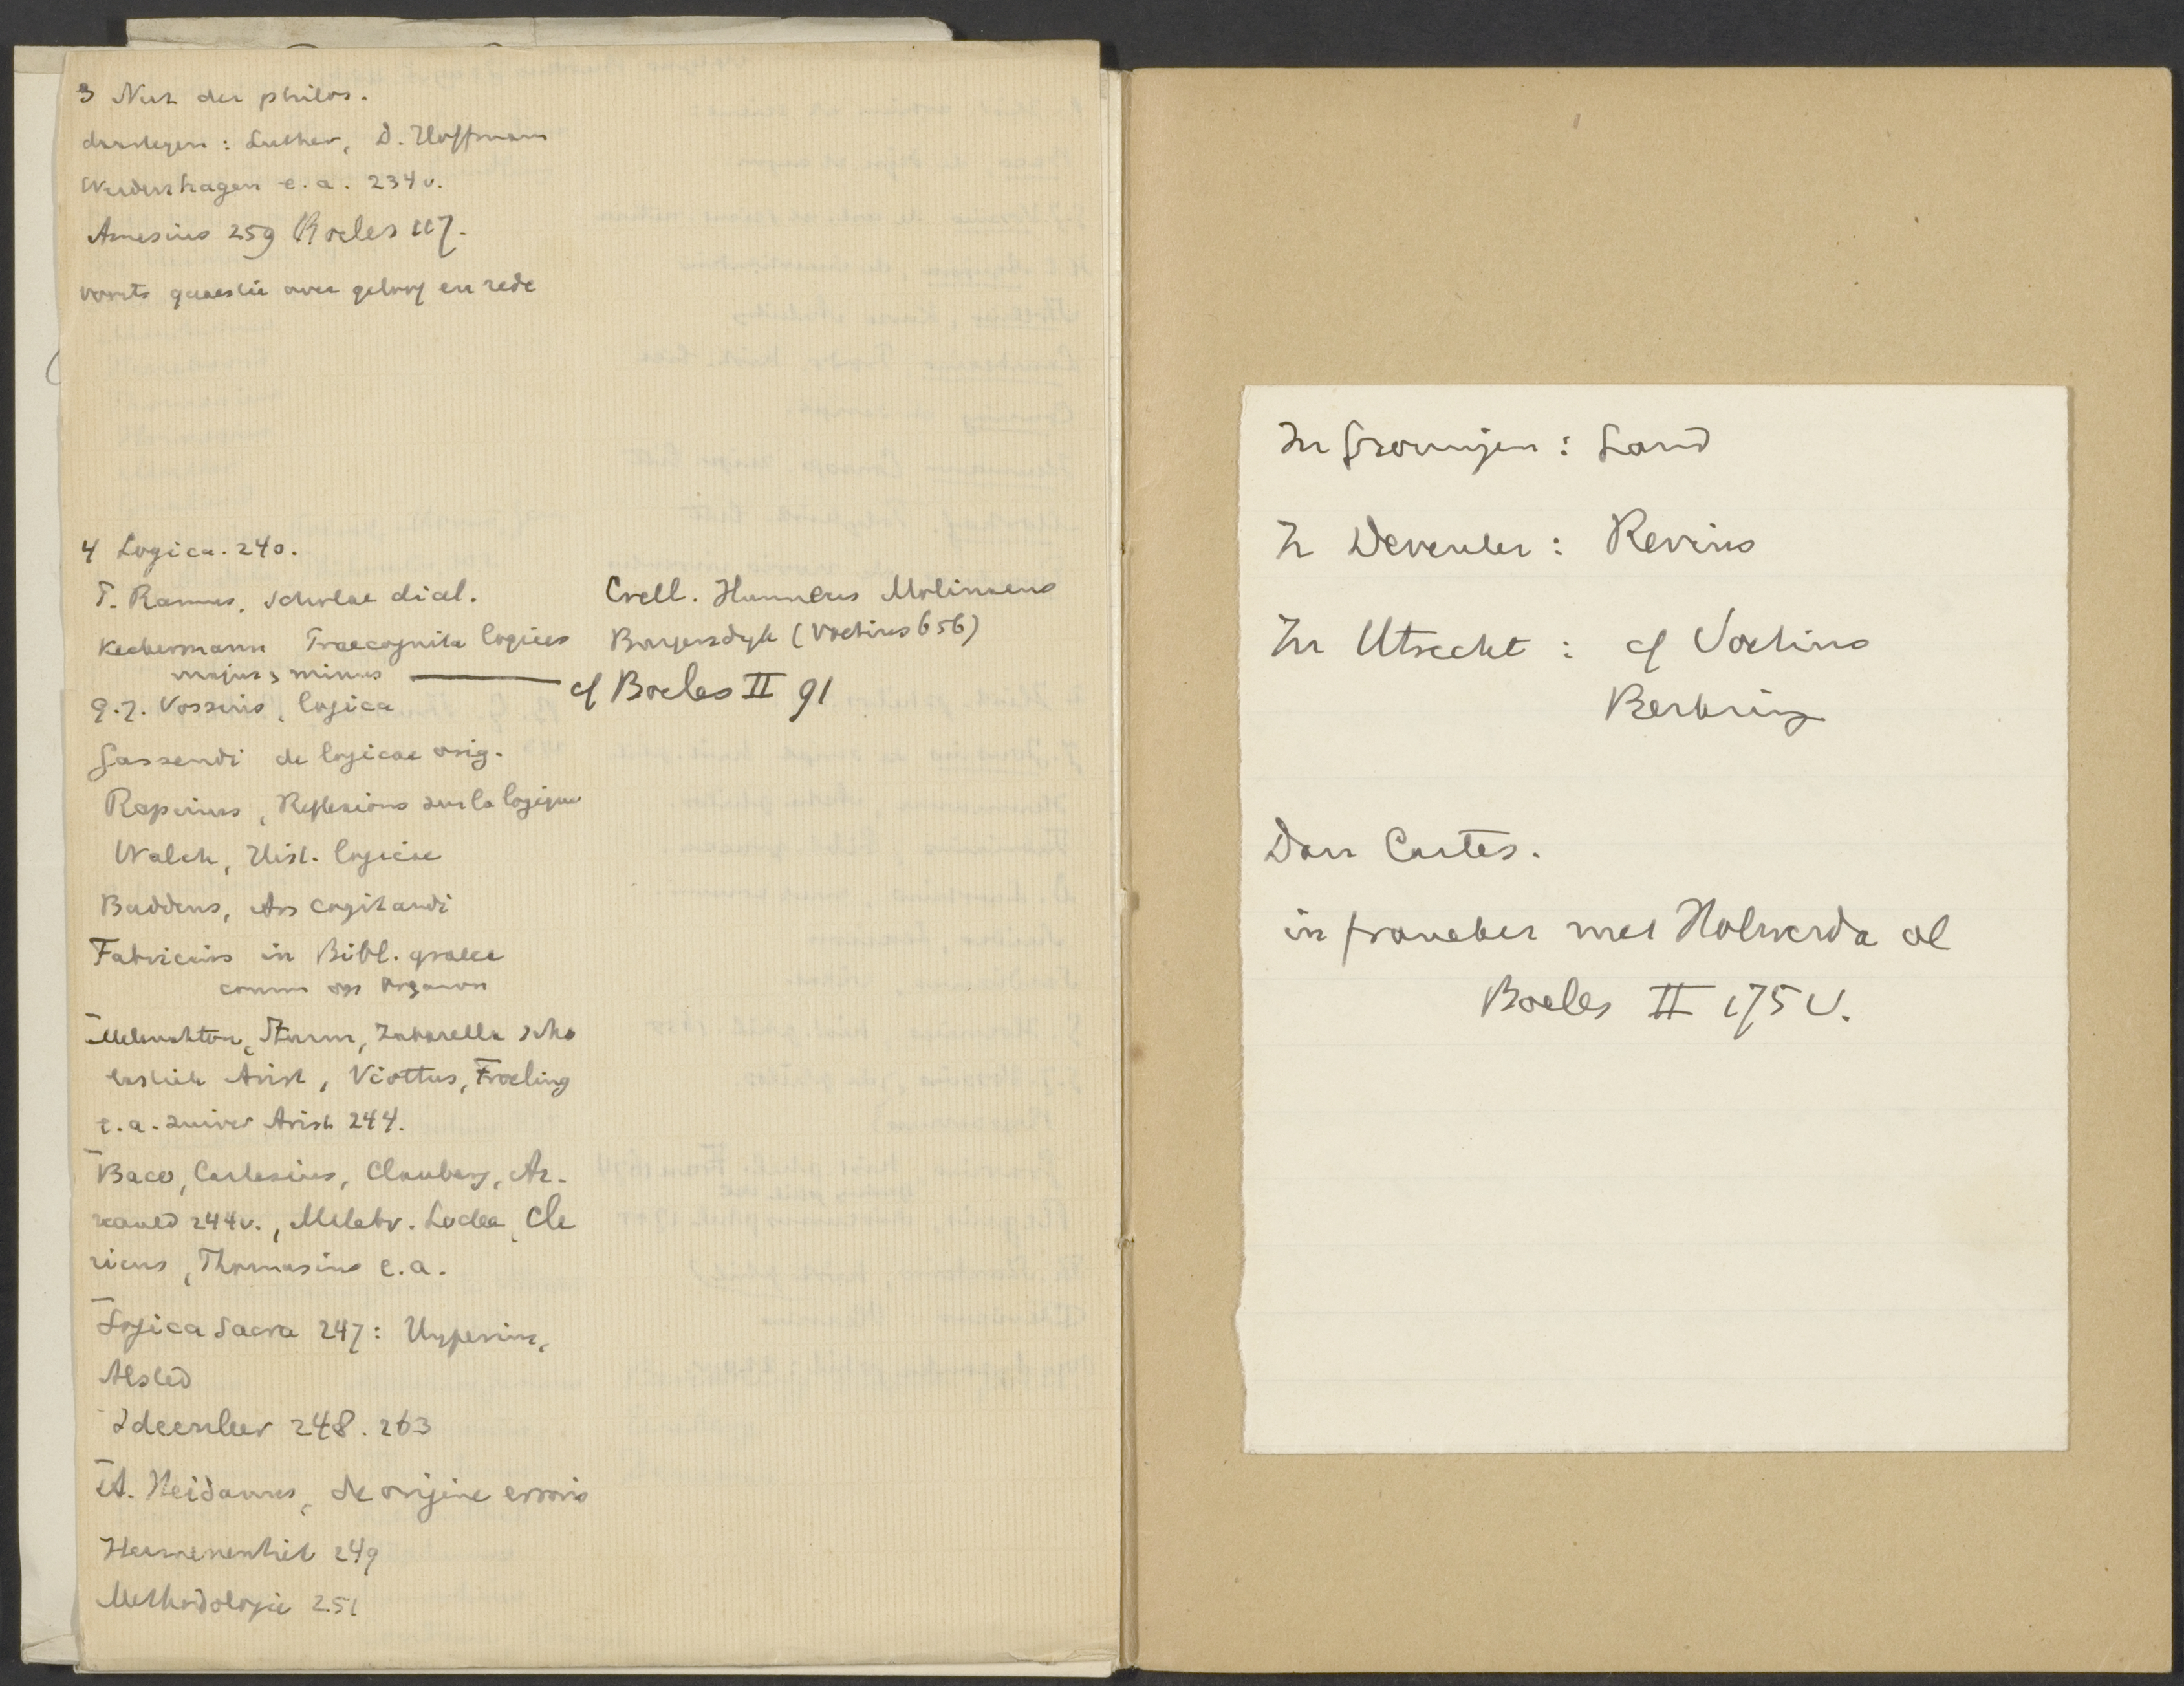 3 Nut der philos.
daartegen: Luther, D. Hoffmann
Werdenhagen e.a. 234 v.
Amesius 259 Boeles 117.
voorts quaestie over geloof en rede
4 Logica. 240.
P. Ramus, scholae dial.
Keckermann Praecognita logices
majus, minus
G. J. Vossius, logica
Gassendi de logicae orig.
Rapinus, Reflexions sur la logique
Walch, Hist. logicae
Buddeus, Ars cogitandi
Fabricius in Bibl. graeca
comm op Organon
Melanchton, Sturm, Zabarella scho
lastiek Arist, Viottus, Froeling
e.a. zuiver Arist 244.
Baco, Cartesius, Clauberg, Ar-
nauld 244 v., Malebr. Locke, Cle
ricus, Thomasius e.a.
Logica sacra 247: Hyperius,
Alsted
Ideenleer 248. 263
A. Heidanus, de origine erroris
Hermeneutiek 249
Methodologie 251
Crell. Hunnaeus Molinaeus
Burgersdyk (Voetius 656)
cf Boeles II 91
In Groningen: Land
In Deventer: Revius
In Utrecht: cf Voetius
Berkring
Dan Cartes.
in Franeker met Holwerda al
Boeles II 175 v.